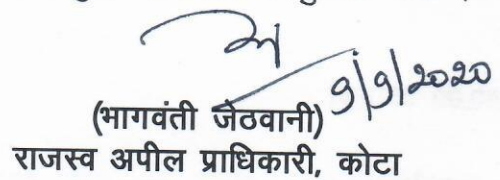 9/9/2020
(भागवंती जेठवानी)
राजस्व अपील प्राधिकारी, कोटा